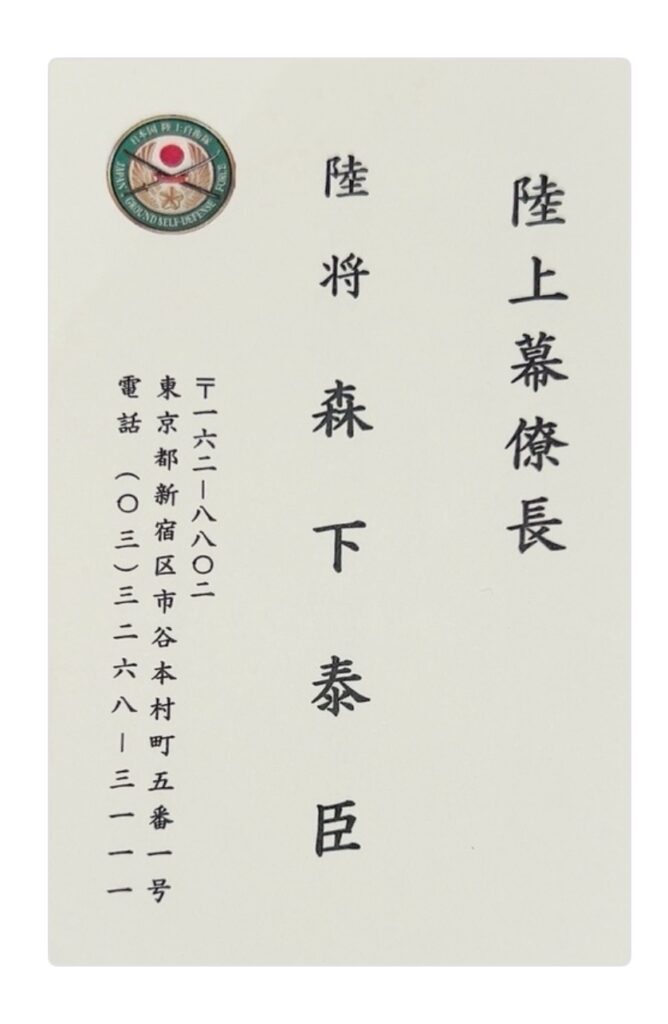 陸上幕僚長
陸将 森下泰臣
〒一六二―八八〇二
東京都新宿区市谷本村町五番一号
電話 (〇三)三二六八―三一一一
日本国 陸上自衛隊
JAPAN GROUND SELF-DEFENSE FORCE